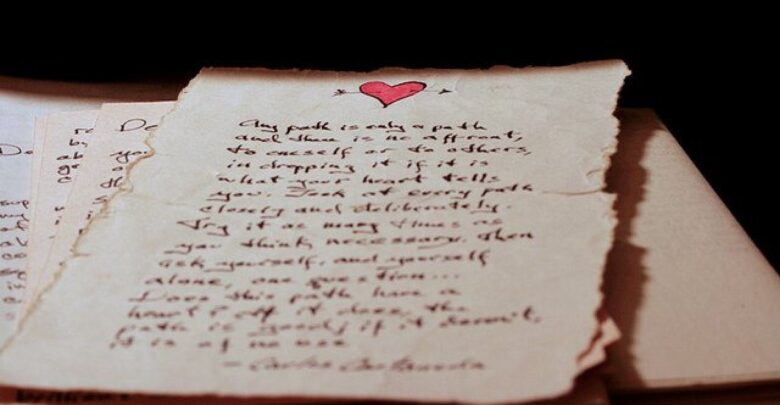 Any path is only a path
and there is no affront,
to oneself or to others,
in dropping it if it is
what your heart tells
you. Look at every path
closely and deliberately.
Try it as many times as
you think necessary. Then
ask yourself, and yourself
alone, one question...
Does this path have a
heart? If it does, the
path is good; if it doesn't,
it is of no use
- Carlos Castaneda